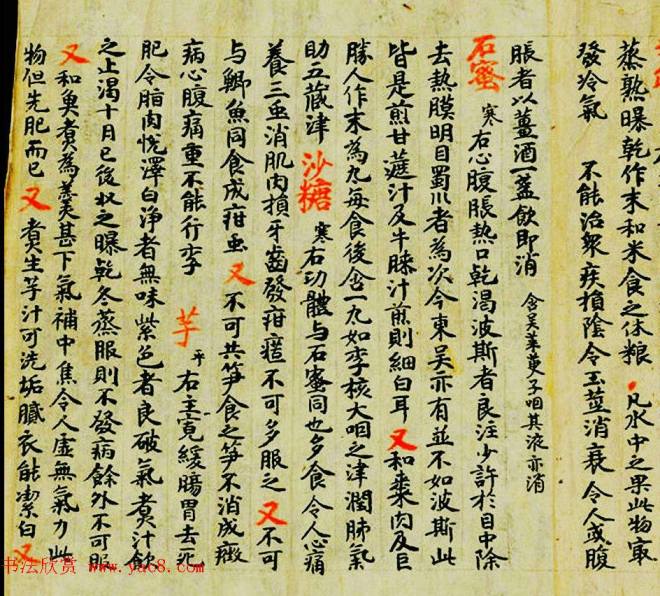 蒸熟曝乾作末和米食之休粮 凡水中之果此物冣
發冷氣 不能治衆疾損陰令玉莖消衰 令人或腹
脹者以薑酒一盞飲即消 含吴茱萸子咽其液亦消
石蜜 寒 右心腹脹熱口乾渴波斯者良注少許於目中除
去熱膜明目蜀川者為次今東吴亦有並不如波斯此
皆是煎甘蔗汁及牛膝汁煎則細白耳 又和棗肉及巨
勝人作末為丸每食後含一丸如李核大咽之津潤肺氣
助五藏津 沙糖 寒 右功體与石蜜同也多食令人心痛
養三虫消肌肉損牙齒發疳 不可多服之 又不可
与鯽魚同食成疳虫 又 不可共笋食之笋不消成癥
病心腹痛重不能行李 芋 平 右主寬緩腸胃去死
肥令脂肉悦澤白净者無味紫色者良破氣煮汁飲
之止渴十月已後收之曝乾冬蒸服則不發病餘外不可服
又和魚煮為羹甚下氣補中焦令人虛無氣力此
物但先肥而已 又 煮生芋汁可洗垢膩衣能潔白 又
书法欣赏 www.yac8.com